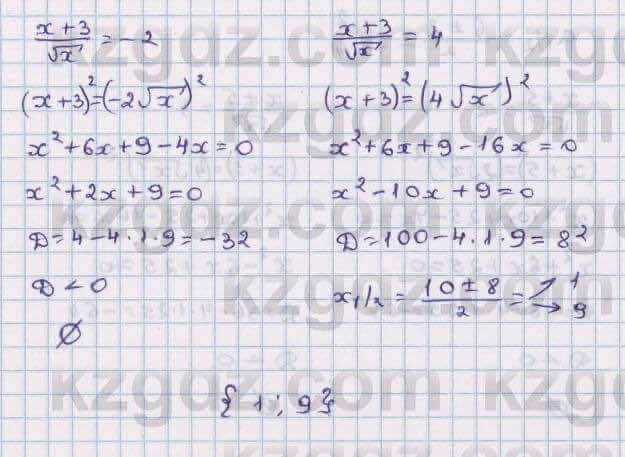 (x+3)/√x = -2
(x+3)² = (-2√x)²
x² + 6x + 9 - 4x = 0
x² + 2x + 9 = 0
D = 4 - 4·1·9 = -32
D < 0
∅
(x+3)/√x = 4
(x+3)² = (4√x)²
x² + 6x + 9 - 16x = 0
x² - 10x + 9 = 0
D = 100 - 4·1·9 = 8²
x₁/₂ = (10 ± 8)/2 = ↗ 1 → 9
{1; 9}
kzgdz.com